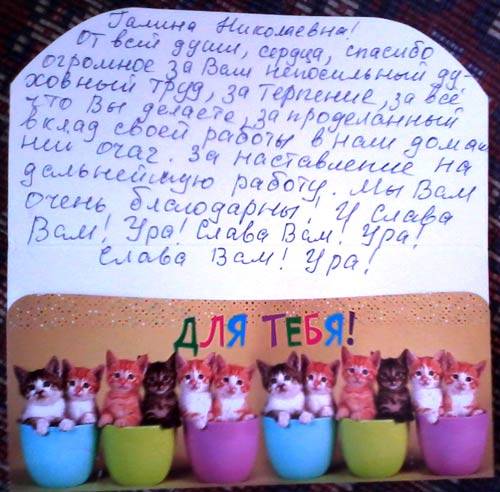 Галина Николаевна!
От всей души, сердца, спасибо
огромное за Ваш непосильный ду-
ховный труд, за терпение, за всё
что Вы делаете, за проделанный
вклад своей работы в наш домаш
ний очаг. За наставление на
дальнейшую работу. Мы Вам
очень благодарны! И Слава
Вам! Ура! Слава Вам! Ура!
Слава Вам! Ура!
ДЛЯ ТЕБЯ!